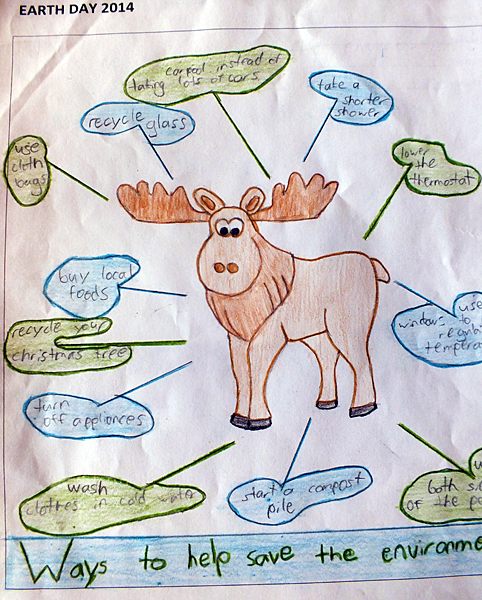 EARTH DAY 2014
carpool instead of
taking lots of cars
recycle glass
take a
shorter
shower
use
cloth
bags
lower
the
thermostat
buy local
foods
use
windows to
temper
recycle your
christmas tree
turn
off appliences
wash
clothes in cold water
start a compost
pile
both
of the
Ways to help save the environme